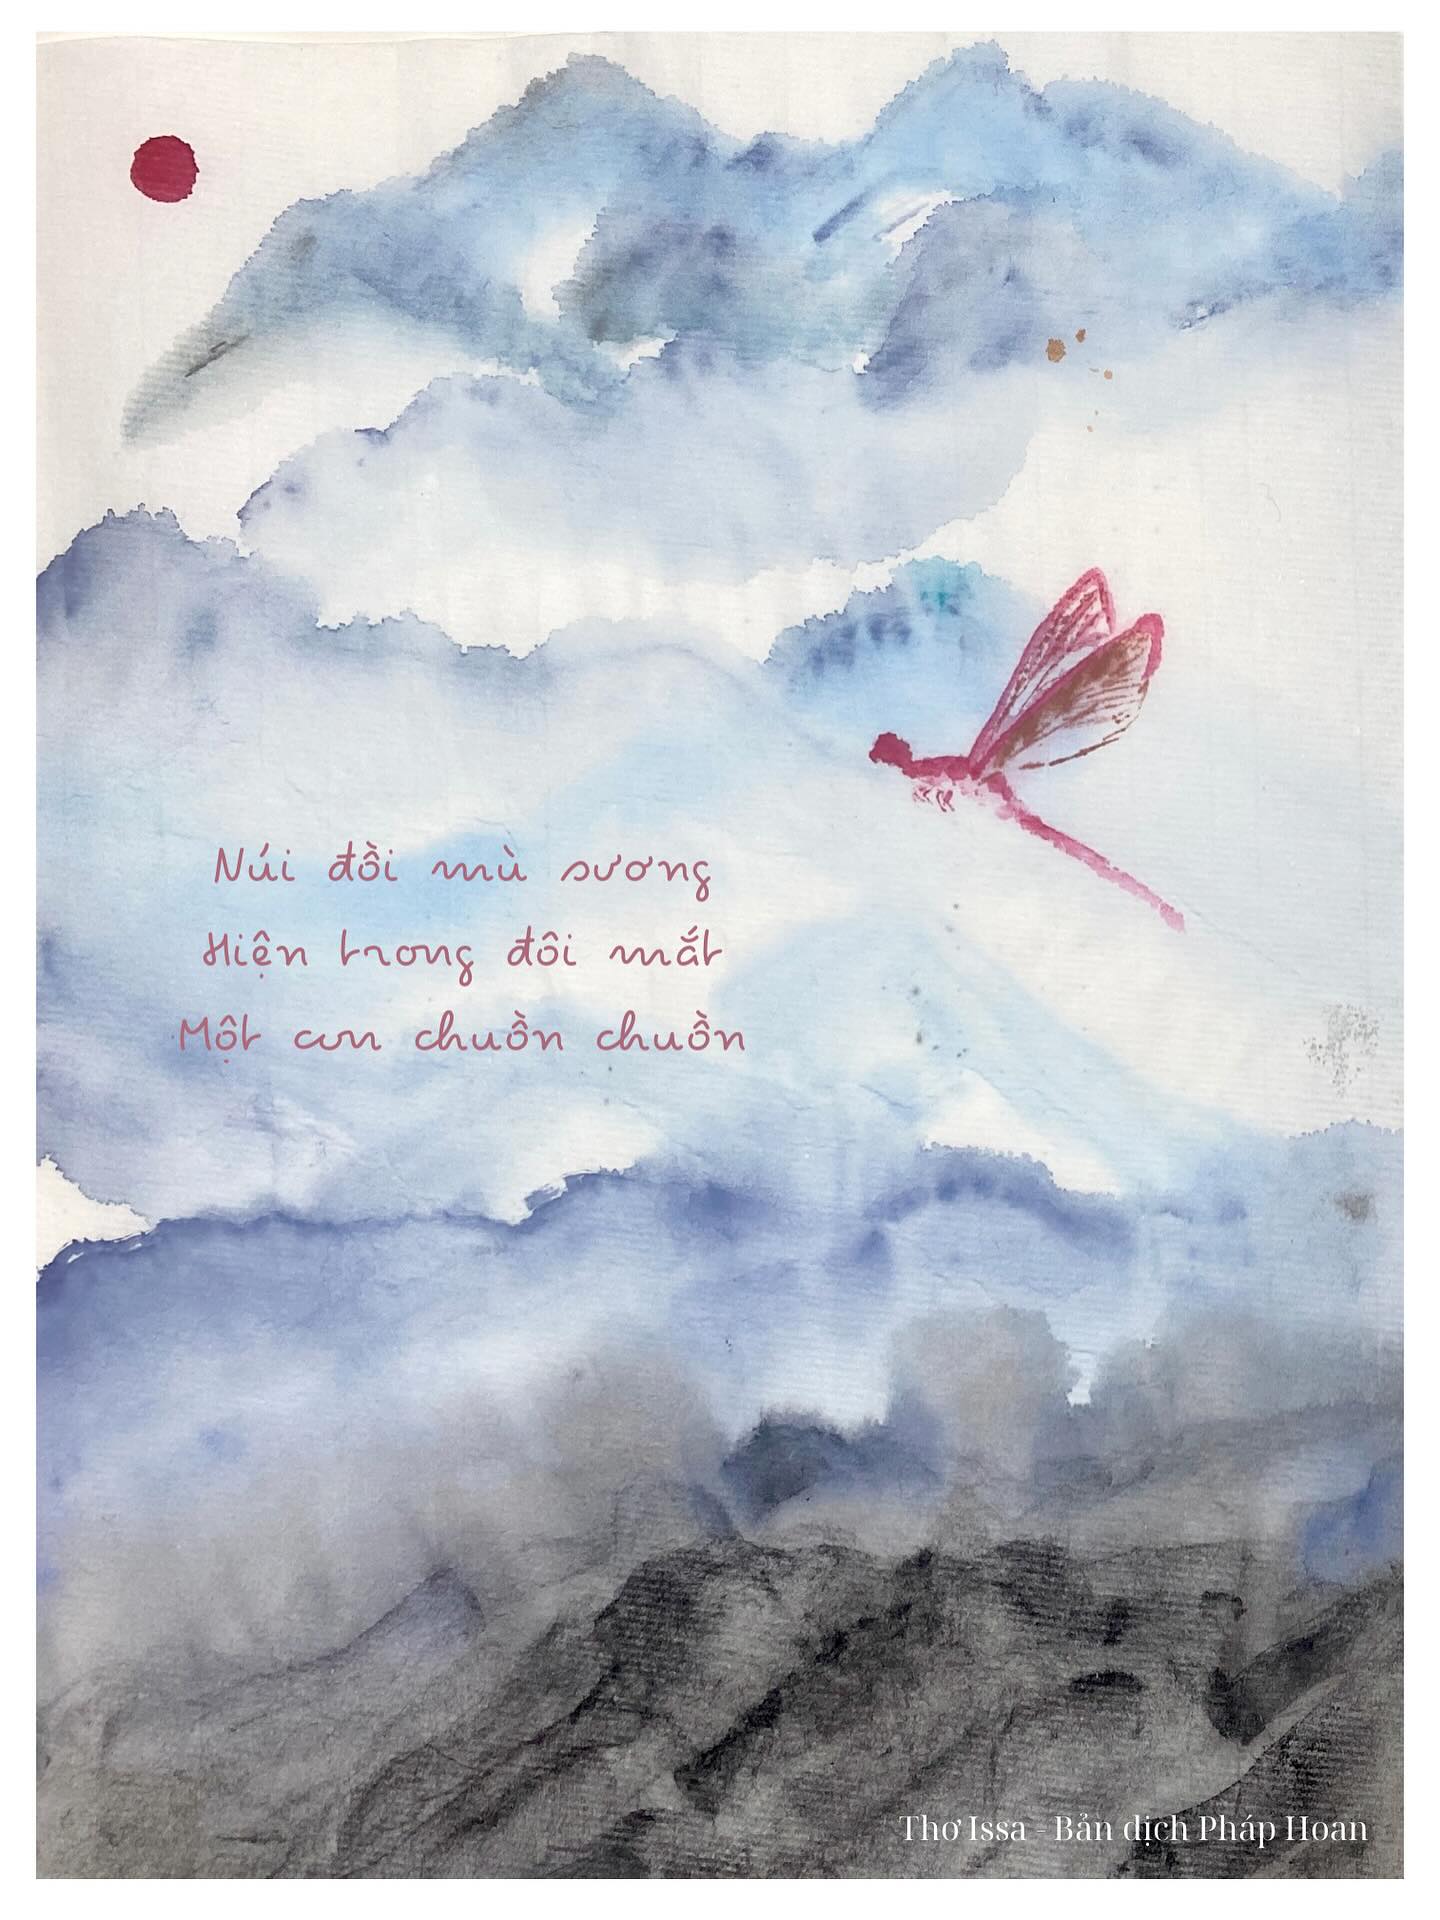 Núi đồi mù sương
Hiện trong đôi mắt
Một con chuồn chuồn
Thơ Issa - Bản dịch Pháp Hoan